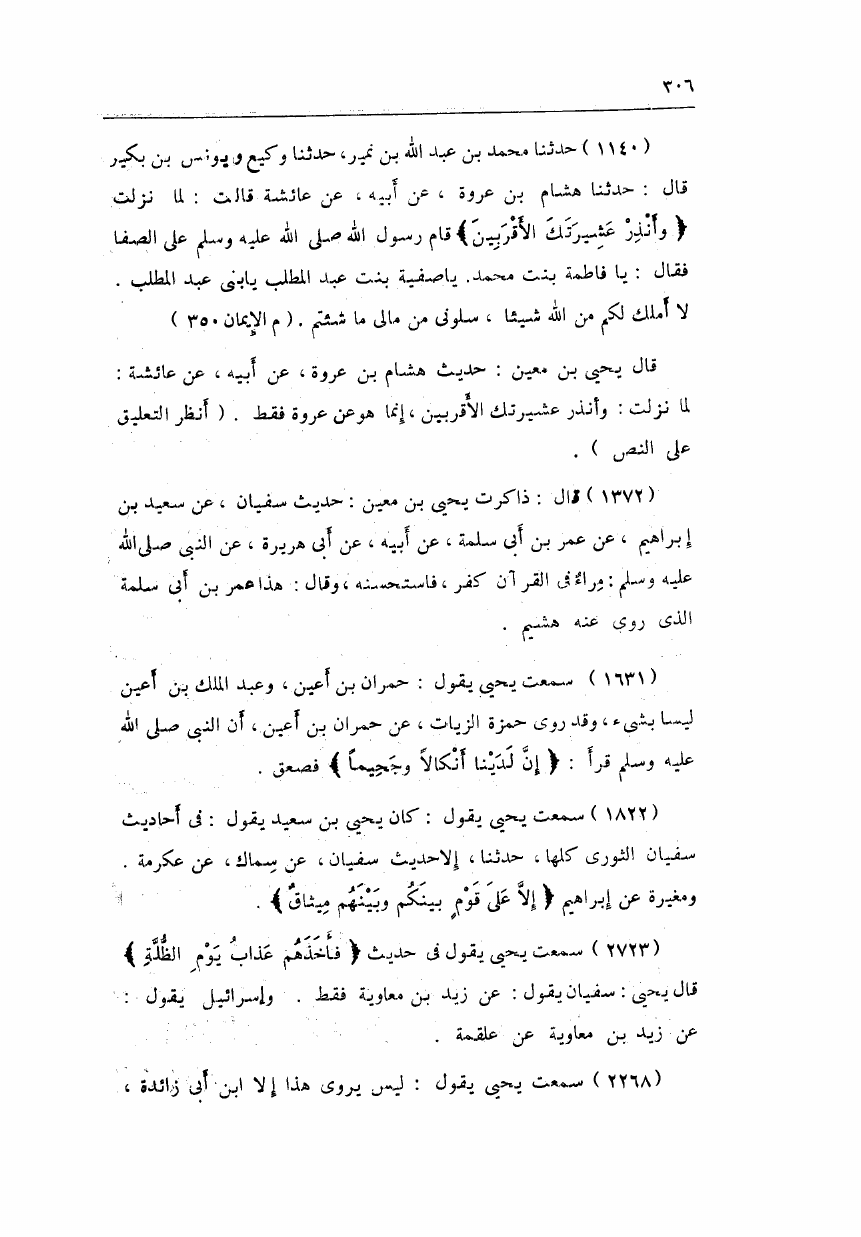 ٣٠٦
( ١١٤٠ ) حدثنا محمد بن عبد الله بن نمير، حدثنا وكيع و يونس بن بكير
قال : حدثنا هشام بن عروة ، عن أبيه ، عن عائشة قالت : لما نزلت
﴿ وأَنْذِرْ عَشِيرَتَكَ الأَقْرَبِينَ﴾ قام رسول الله صلى الله عليه وسلم على الصفا
فقال : يا فاطمة بنت محمد. ياصفية بنت عبد المطلب يابنى عبد المطلب .
لا أملك لكم من الله شيئا ، سلونى من مالى ما شئتم . ( م الإيمان ٣٥٠ )
قال يحيى بن معين : حديث هشام بن عروة ، عن أبيه ، عن عائشة :
لما نزلت : وأنذر عشيرتك الأقربين ، إنما هو عن عروة فقط . ( أنظر التعليق
على النص ) .
( ١٣٧٢ ) قال : ذاكرت يحيى بن معين : حديث سفيان ، عن سعيد بن
إبراهيم ، عن عمر بن أبى سلمة ، عن أبيه ، عن أبى هريرة ، عن النبى صلى الله
عليه وسلم : مِراءٌ فى القرآن كفر ، فاستحسنه ، وقال : هذا عمر بن أبى سلمة
الذى روى عنه هشيم .
( ١٦٣١ ) سمعت يحيى يقول : حمران بن أعين ، وعبد الملك بن أعين
ليسا بشىء ، وقد روى حمزة الزيات ، عن حمران بن أعين ، أن النبى صلى الله
عليه وسلم قرأ : ﴿ إِنَّ لَدَيْنا أَنْكالاً وجَحِيماً ﴾ فصعق .
( ١٨٢٢ ) سمعت يحيى يقول : كان يحيى بن سعيد يقول : فى أحاديث
سفيان الثورى كلها ، حدثنا ، إلاحديث سفيان ، عن سِماك ، عن عكرمة .
ومغيرة عن إبراهيم ﴿ إِلاَّ عَلَى قَوْمٍ بينَكُم وبَيْنَهُم مِيثاقٌ ﴾ .
( ٢٧٢٣ ) سمعت يحيى يقول فى حديث ﴿ فَأَخَذَهُم عَذابُ يَوْمِ الظُّلَّةِ ﴾
قال يحيى : سفيان يقول : عن زيد بن معاوية فقط . وإسرائيل يقول :
عن زيد بن معاوية عن علقمة .
( ٢٢٦٨ ) سمعت يحيى يقول : ليس يروى هذا إلا ابن أبى زائدة ،